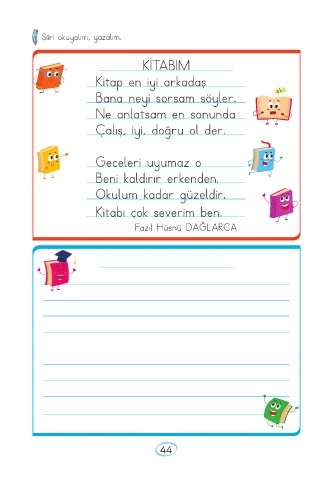 Şiiri okuyalım, yazalım.
KİTABIM
Kitap en iyi arkadaş
Bana neyi sorsam söyler.
Ne anlatsam en sonunda
Çalış, iyi, doğru ol der.
Geceleri uyumaz o
Beni kaldırır erkenden.
Okulum kadar güzeldir.
Kitabı çok severim ben.
Fazıl Hüsnü DAĞLARCA
44